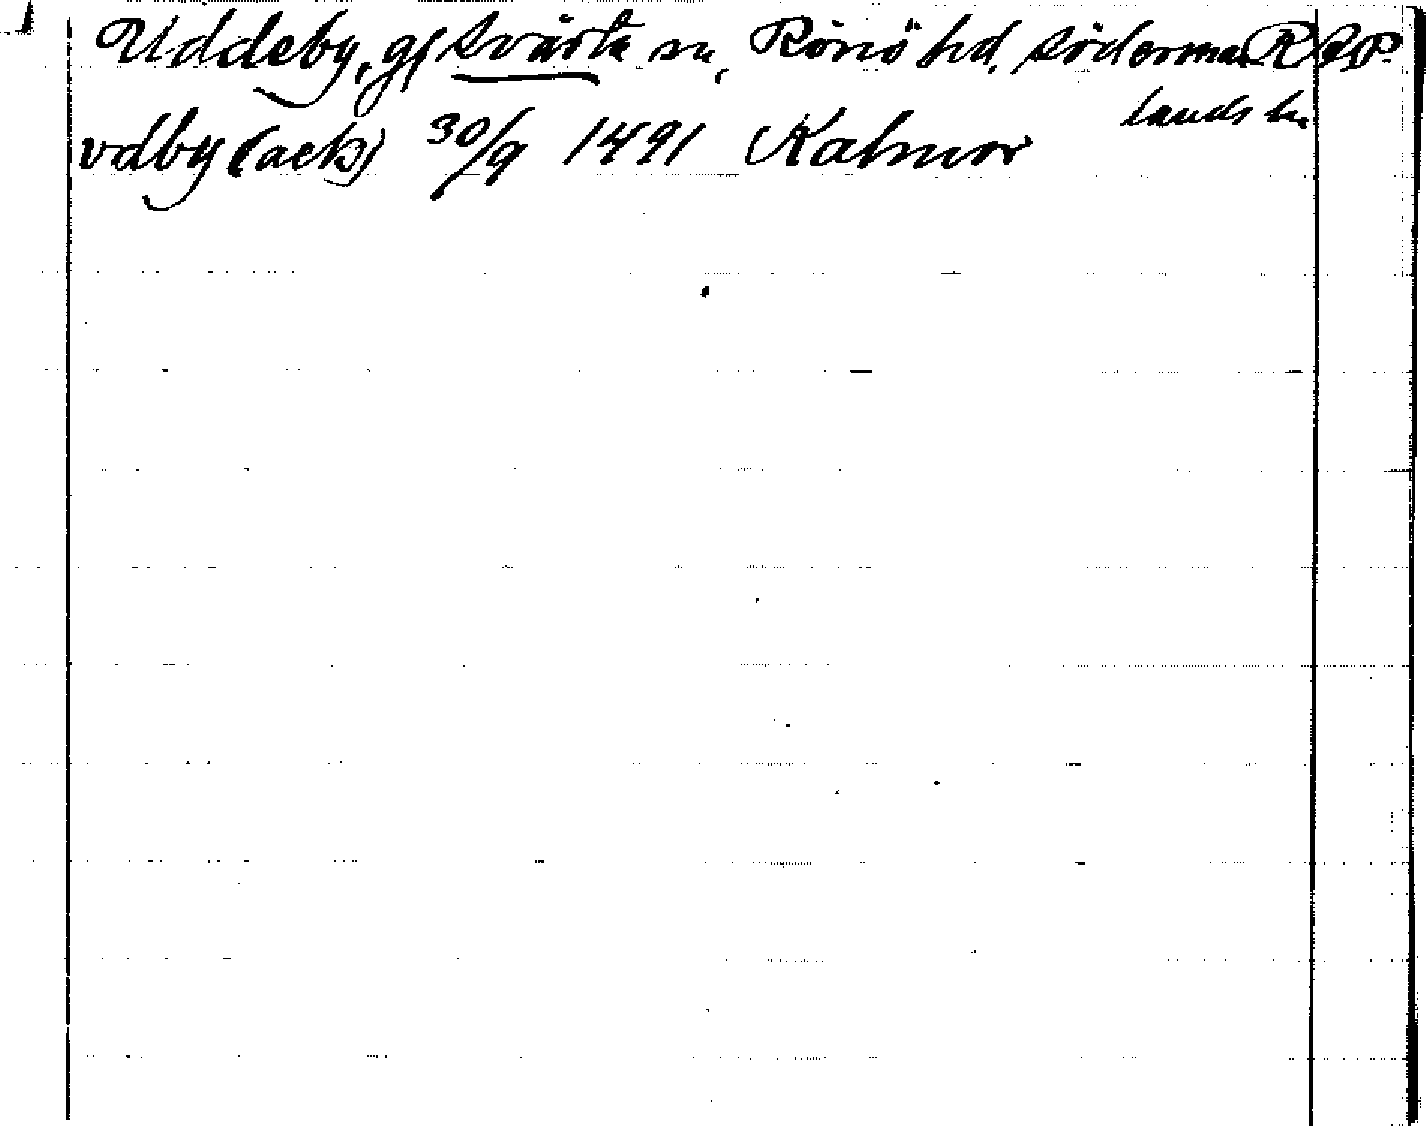 Uddeby, gf Svärta sn, Rönö hd. Söderman RAP
lands ln.
vdby (ack) 30/9 1491 Kalmar